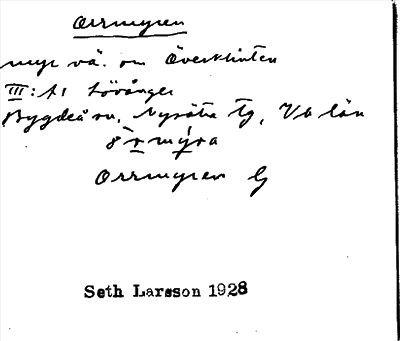 Orrmyren
myr vä. om Överklinten
III: A1 Lövånger
Bygdeå sn, Nysätra tg, Vb län
Orrmyren G
Seth Larsson 1928